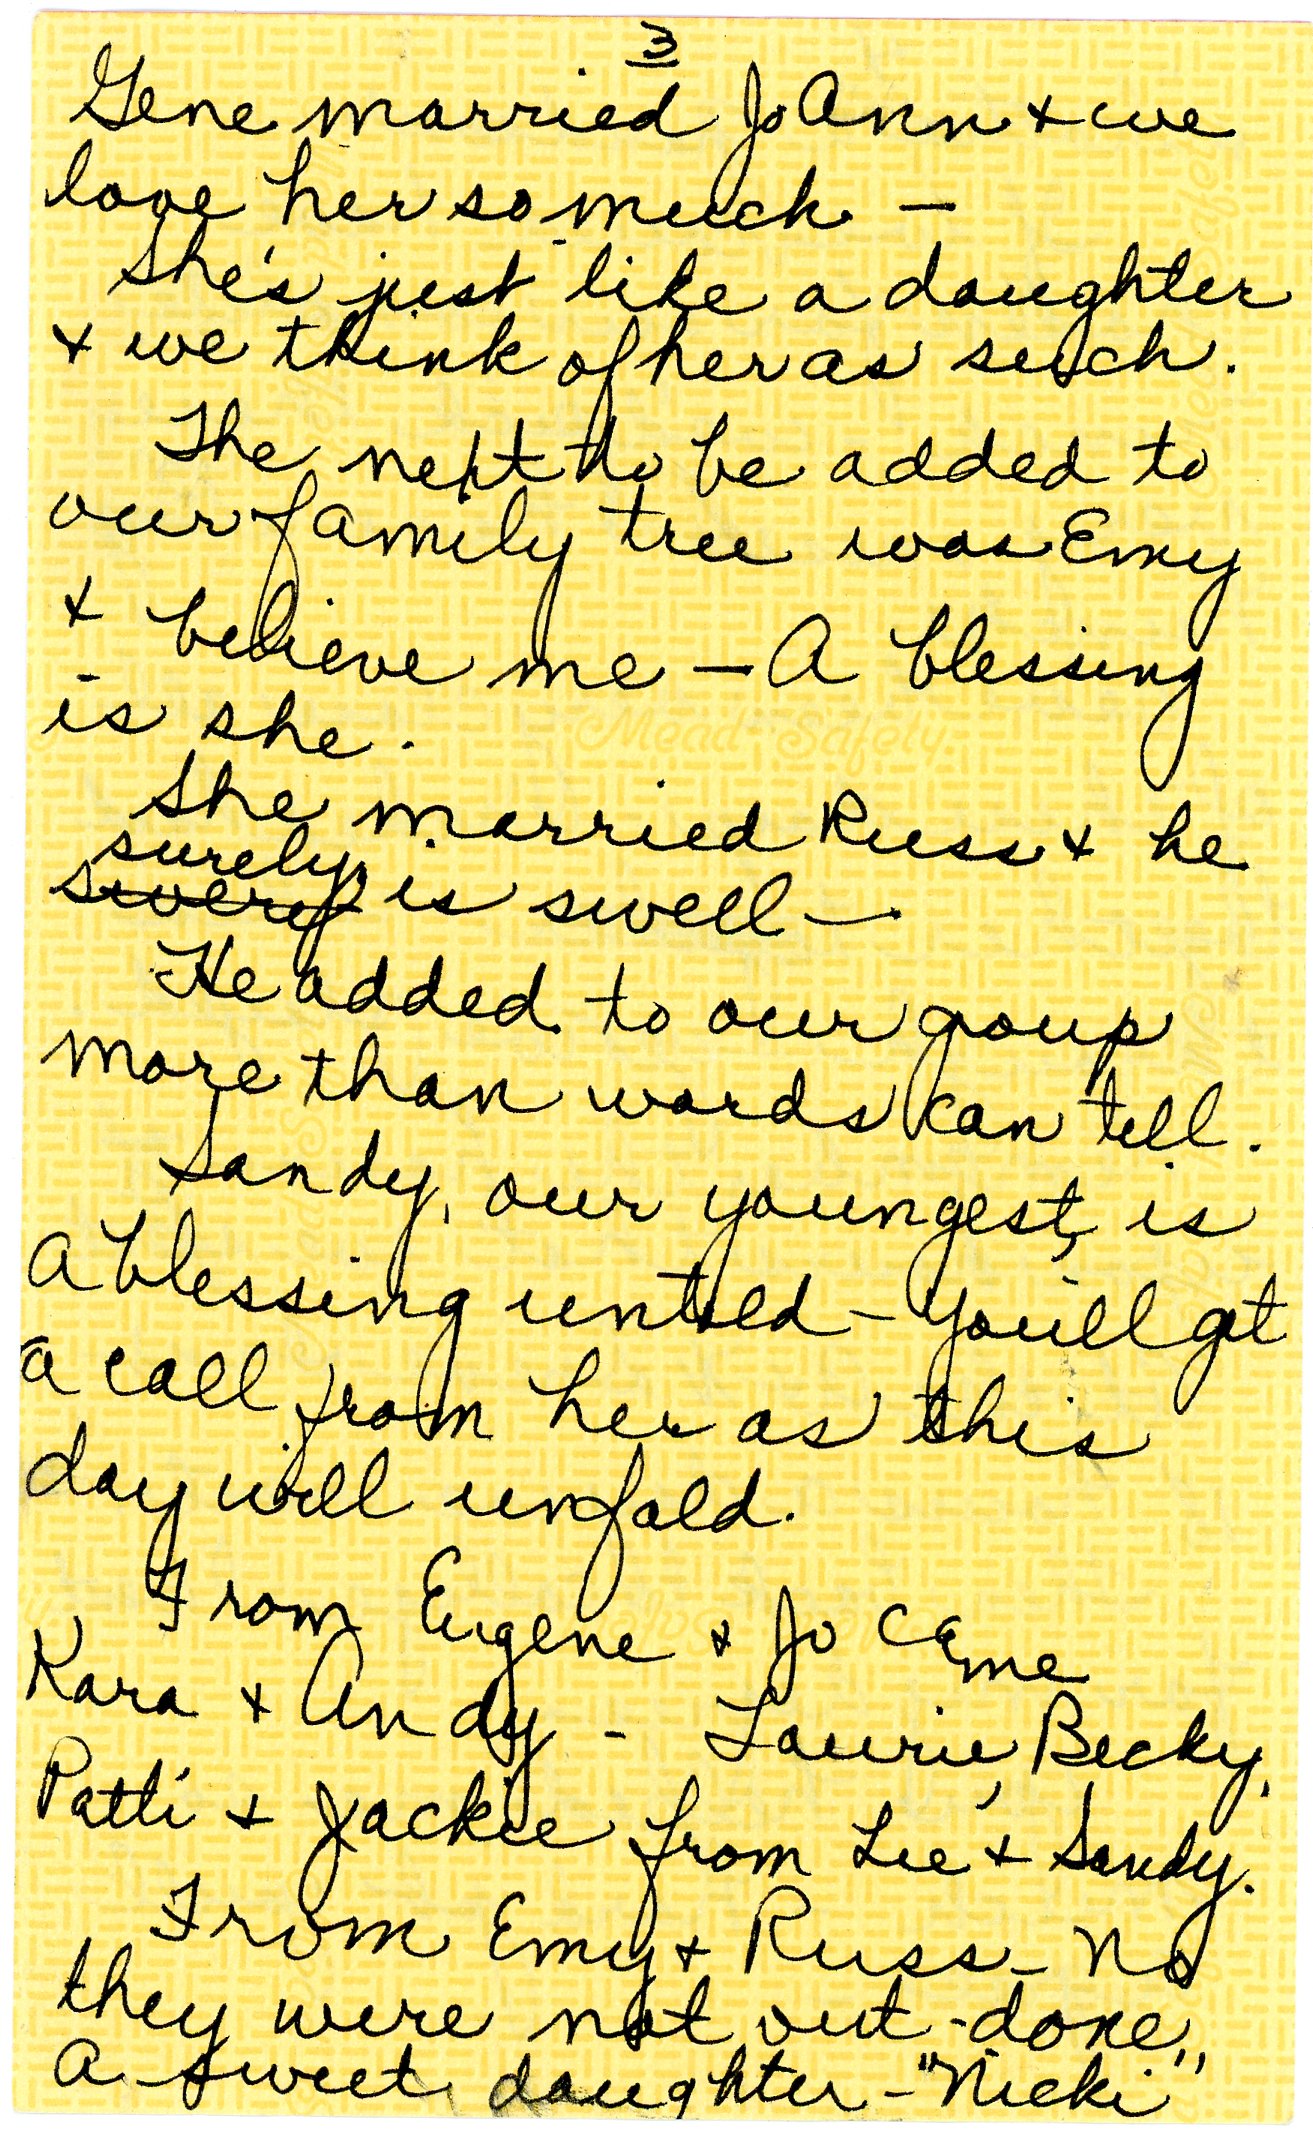 3
Gene married JoAnn & we
love her so much —
She's just like a daughter
& we think of her as such.
The next to be added to
our family tree was Emy
& believe me — A blessing
is she.
Mead Safety
She married Russ & he
surely
swery is swell —.
He added to our group
more than words can tell.
Sandy, our youngest, is
A blessing untold — You'll get
a call from her as this
day will unfold.
From Eugene & Jo came
Kara & Andy - Laurie, Becky,
Patti & Jackie from Lee & Sandy.
From Emy & Russ - No
they were not out-done,
A sweet daughter - "Nicki"